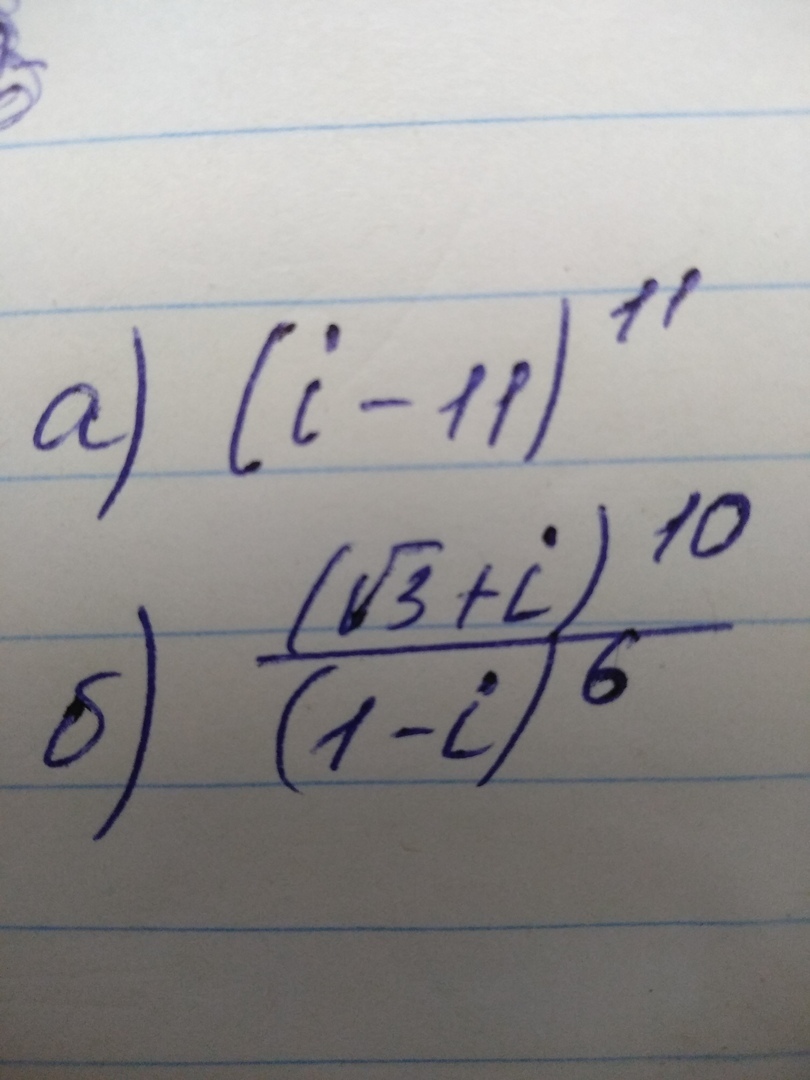 а) (i-11)^11
б) (√3+i)^10
(1-i)^6